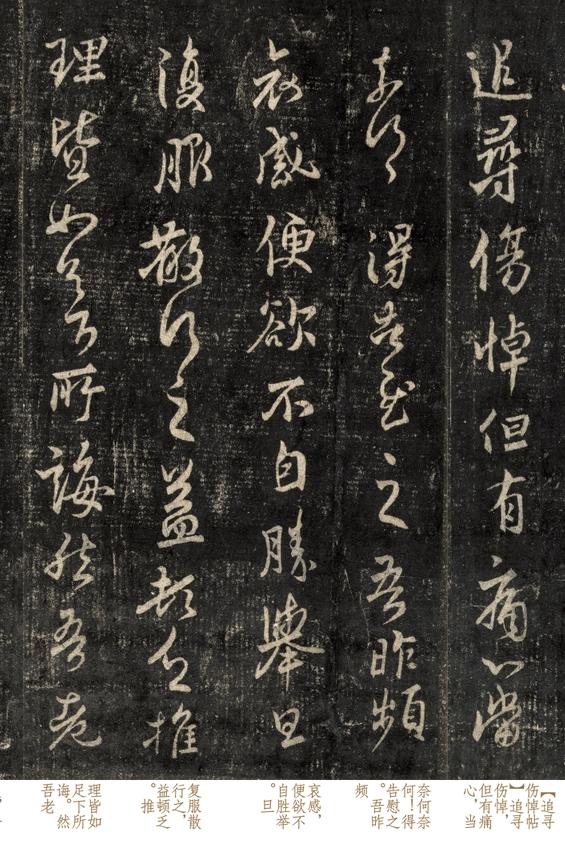 追尋傷悼但有痛心當
奈何得告慰之吾昨頻
哀感便欲不自勝舉旦
復服散行之益頓乏推
理皆如足下所誨然吾老
【追寻
伤悼帖
】追寻
伤悼，
但有痛
心，当
奈何奈
何！得
告慰之
。吾昨
频
哀感，
便欲不
自胜举
。旦
复服散
行之，
益顿乏
。推
理皆如
足下所
诲。然
吾老